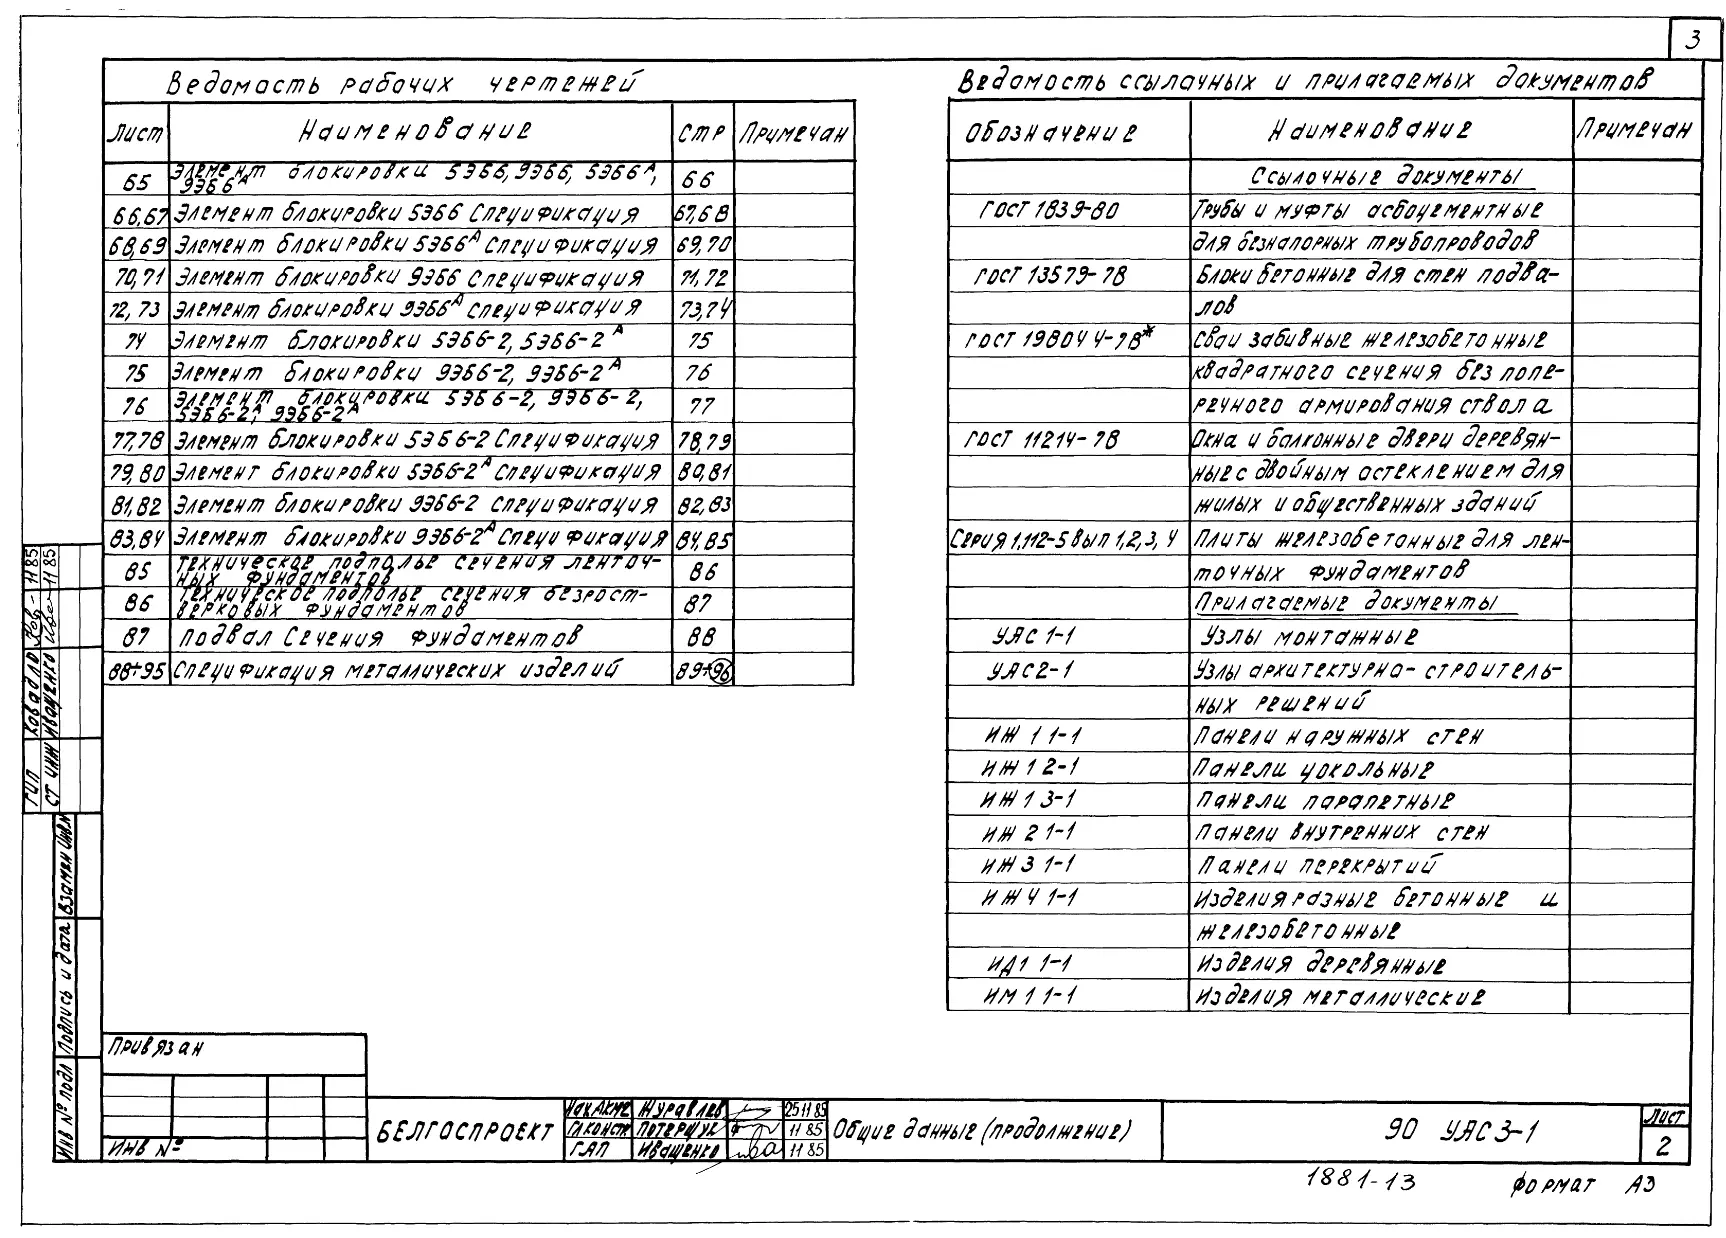 3
Ведомость рабочих чертежей
Лист Наименование Стр Примечан
65 Элемент блокировки 5ЭБ6, 9ЭБ6, 5ЭБ6А, 9ЭБ6А 66
66,67 Элемент блокировки 5ЭБ6 Спецификация 67,68
68,69 Элемент блокировки 5ЭБ6А Спецификация 69,70
70,71 Элемент блокировки 9ЭБ6 Спецификация 71,72
72,73 Элемент блокировки 9ЭБ6А Спецификация 73,74
74 Элемент блокировки 5ЭБ6-2, 5ЭБ6-2А 75
75 Элемент блокировки 9ЭБ6-2, 9ЭБ6-2А 76
76 Элемент блокировки 5ЭБ6-2, 9ЭБ6-2, 5ЭБ6-2А, 9ЭБ6-2А 77
77,78 Элемент блокировки 5ЭБ6-2 Спецификация 78,79
79,80 Элемент блокировки 5ЭБ6-2А Спецификация 80,81
81,82 Элемент блокировки 9ЭБ6-2 Спецификация 82,83
83,84 Элемент блокировки 9ЭБ6-2А Спецификация 84,85
85 Техническое подполье сечения ленточ-
ных фундаментов 86
86 Техническое подполье сечения безрост-
верковых фундаментов 87
87 Подвал Сечения фундаментов 88
88÷95 Спецификация металлических изделий 89÷96
Ведомость ссылочных и прилагаемых документов
Обозначение Наименование Примечан
Ссылочные документы
ГОСТ 1839-80 Трубы и муфты асбоцементные
для безнапорных трубопроводов
ГОСТ 13579-78 Блоки бетонные для стен подва-
лов
ГОСТ 19804 4-78* Сваи забивные железобетонные
квадратного сечения без попе-
речного армирования ствола
ГОСТ 11214-78 Окна и балконные двери деревян-
ные с двойным остеклением для
жилых и общественных зданий
Серия 1.112-5 Вып 1,2,3,4 Плиты железобетонные для лен-
точных фундаментов
Прилагаемые документы
УАС 1-1 Узлы монтажные
УАС2-1 Узлы архитектурно-строитель-
ных решений
ИЖ 1 1-1 Панели наружных стен
ИЖ 1 2-1 Панели цокольные
ИЖ 1 3-1 Панели парапетные
ИЖ 2 1-1 Панели внутренних стен
ИЖ 3 1-1 Панели перекрытий
ИЖ 4 1-1 Изделия разные бетонные и
железобетонные
ИД1 1-1 Изделия деревянные
ИМ 1 1-1 Изделия металлические
ГИП Ковадло 11 85
Ст инж Иващенко 11 85
Инв № подл Подпись и дата Взамен Инв.№
Привязан
Инв №
БЕЛГОСПРОЕКТ
Нач АКМ2 Журавлев 25 11 85
Гл констр Потерщук 11 85
ГАП Иващенко 11 85
Общие данные (продолжение)
90 УАС 3-1
Лист
2
1881-13 Формат А3